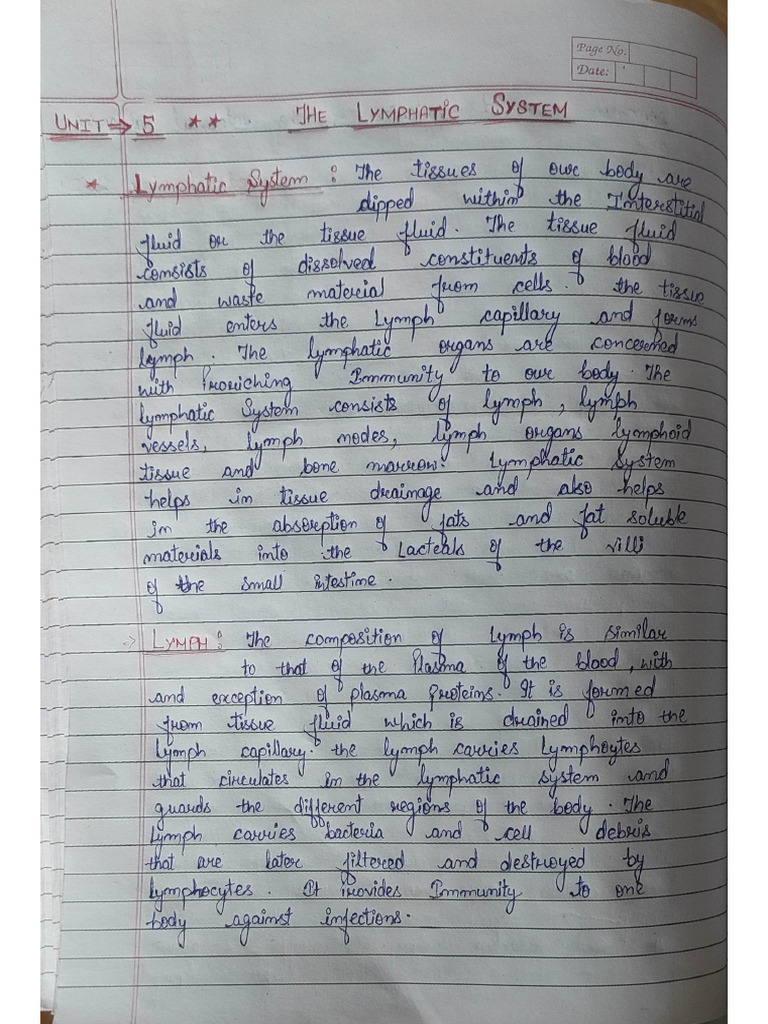 Page No.
Date:
UNIT ⇒ 5 ** THE LYMPHATIC SYSTEM
* Lymphatic System : The tissues of our body are
dipped within the Interstitial
fluid or the tissue fluid. The tissue fluid
consists of dissolved constituents of blood
and waste material from cells. The tissue
fluid enters the Lymph capillary and forms
lymph. The lymphatic organs are concerned
with Immunity to our body. The
lymphatic System consists of lymph, lymph
vessels, lymph nodes, lymph organs lymphoid
tissue and bone marrow. Lymphatic System
helps in tissue drainage and also helps
in the absorption of fats and fat soluble
materials into the Lacteals of the villi
of the small intestine.
→ LYMPH : The composition of Lymph is similar
to that of the Plasma of the blood, with
and exception of plasma proteins. It is formed
from tissue fluid which is drained into the
Lymph capillary. the lymph carries Lymphocytes
that circulates in the lymphatic system and
guards the different regions of the body. The
Lymph carries bacteria and cell debris
that are later filtered and destroyed by
lymphocytes. It Provides Immunity to one
body against infections.